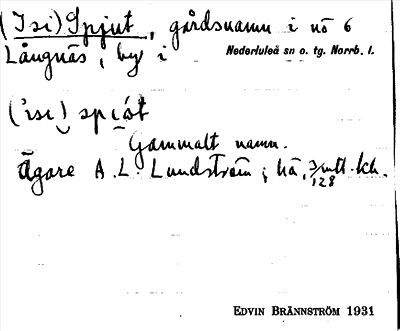 (Isi) Spjut, gårdsnamn i no 6
Långnäs, by i Nederluleå sn o. tg. Norrb. l.
('isi) spiót
Gammalt namn.
Ägare A. L. Lundström i hä, 3/128 mtl.
EDVIN BRÄNNSTRÖM 1931